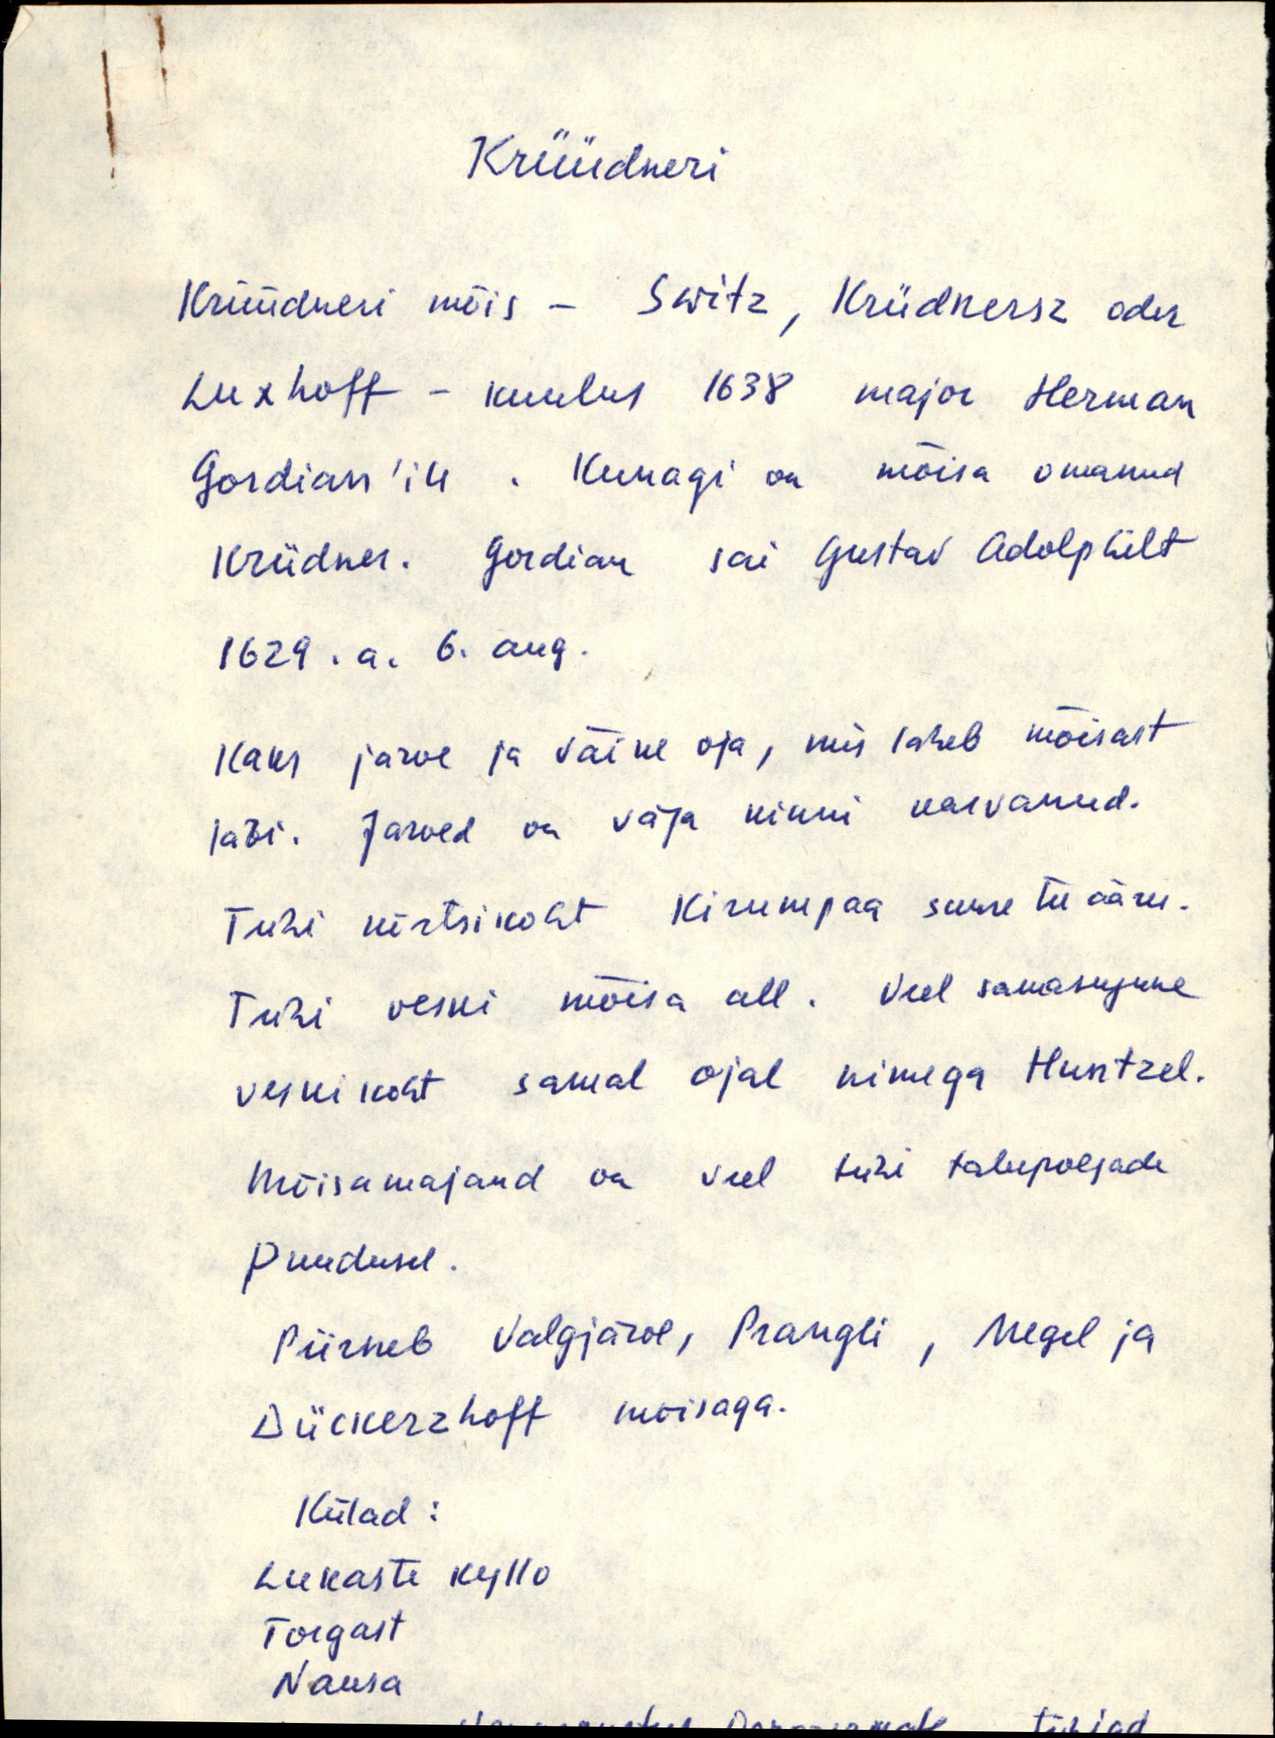 Krüüdneri
Krüüdneri mõis - Switz, Krüdnersz oder
Luxhoff - kuulus 1638 major Herman
Gordian'ile. Kunagi on mõisa omanud
Krüdner. Gordian sai Gustav Adolphilt
1629.a. 6. aug.
Kaks järve ja väike oja, mis läheb mõisast
läbi. Järved on välja kinni kasvanud.
Tühi kõrtsikoht Kirumpää suure tee ääres.
Tühi veski mõisa all. Veel samasugune
veskikoht samal ojal nimega Huntzel.
Mõisamajand on veel tühi talupoegade
puudusel.
Piirneb Valgjärve, Prangli, Megel ja
Dückerzhoff mõisaga.
Külad:
Lukaste kyllo
Torgast
Nausa
tühjad